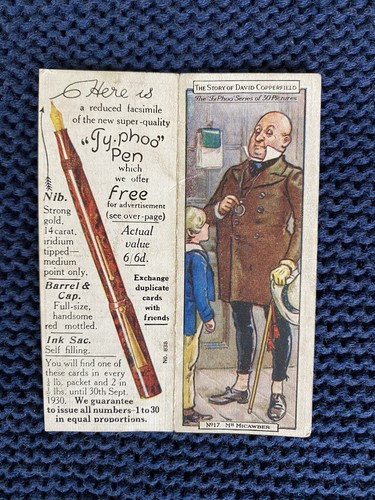 Here is
a reduced facsimile
of the new super-quality
"Ty.phoo"
Pen
which
we offer
free
for advertisement
(see over-page)
Actual
value
6/6d.
Exchange
duplicate
cards
with
friends
Nib.
Strong
gold,
14 carat,
iridium
tipped—
medium
point only.
Barrel &
Cap.
Full-size,
handsome
red mottled.
Ink Sac.
Self filling.
No. 835
You will find one of
these cards in every
¼ lb. packet and 2 in
½ lbs. until 30th Sept.
1930. We guarantee
to issue all numbers-1 to 30
in equal proportions.
THE STORY OF DAVID COPPERFIELD
The "Ty.Phoo" Series of 30 Pictures
No 17. MR MICAWBER